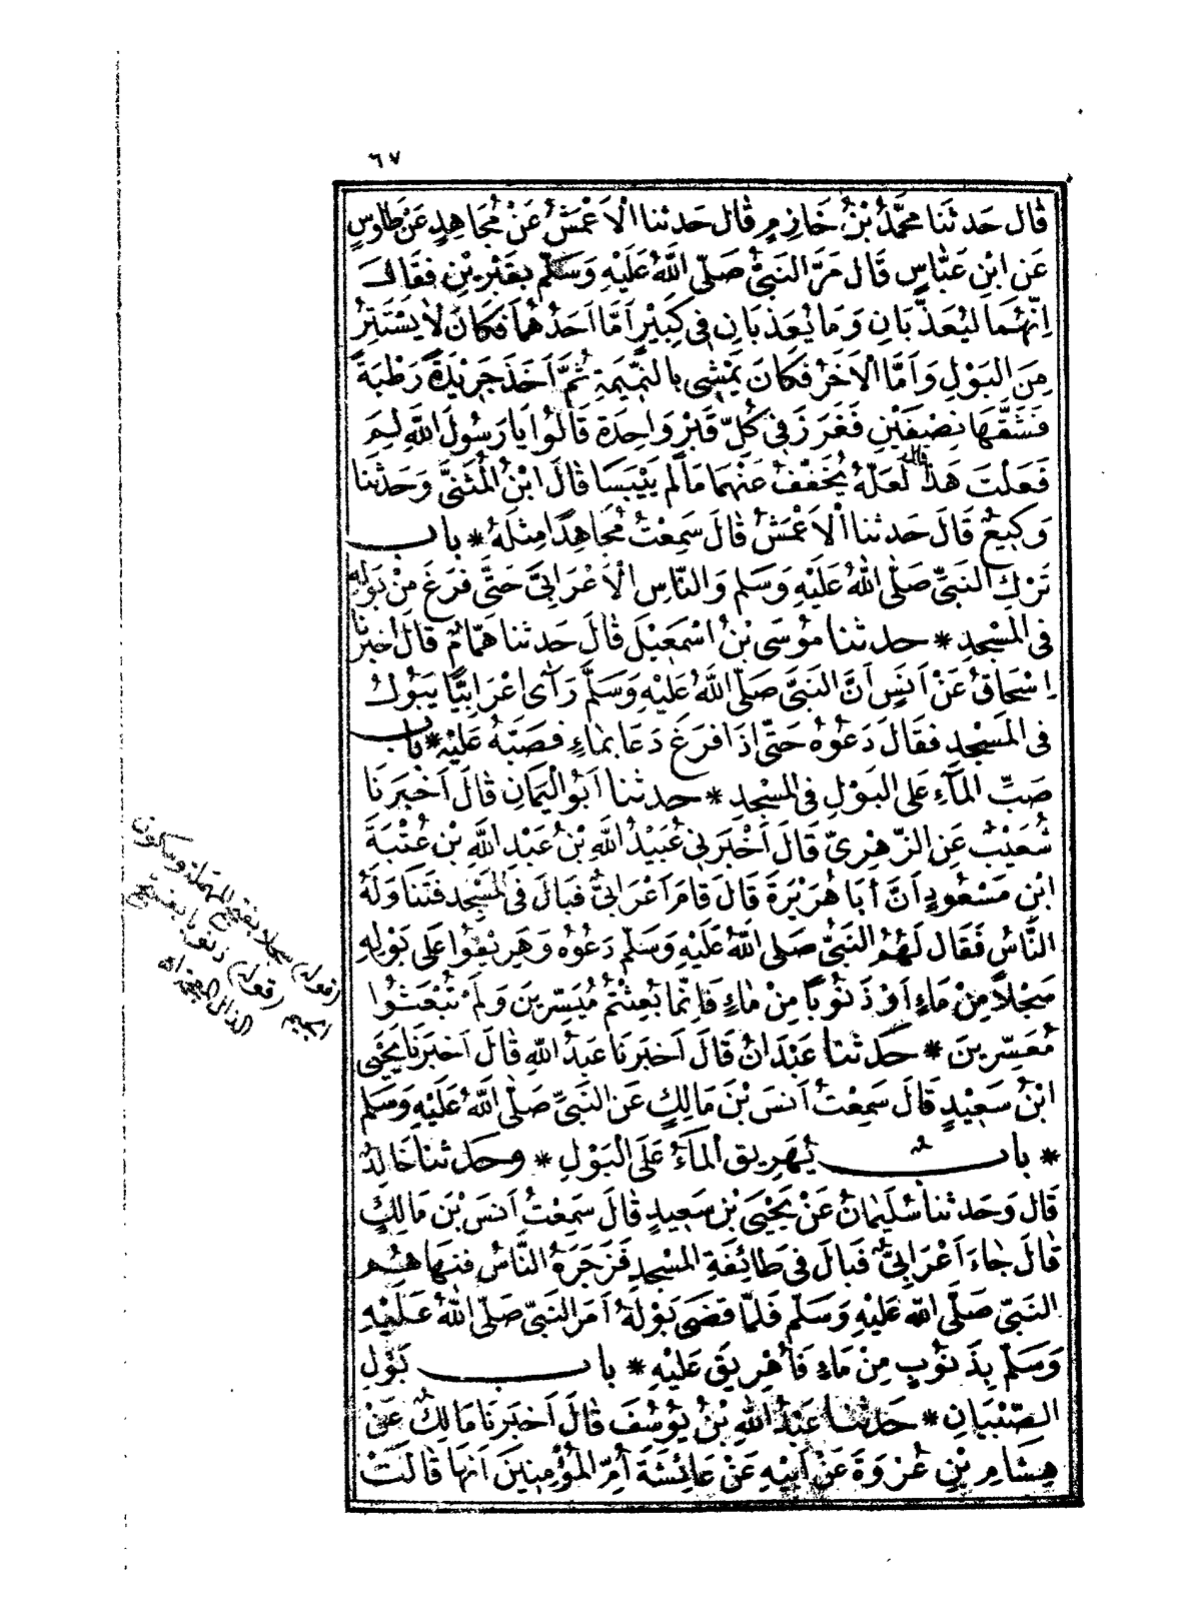 ٦٧
قَال حَدثَنا محَمَّدُ بْنُ خَازِمٍ قَال حَدثنا الْاَعْمَشُ عَنْ مُجَاهِدٍ عَنْ طَاوُسٍ
عَنِ ابْنِ عَبَّاسٍ قَال مَرَّ النَبىُّ صَلّى اللَّهُ عَلَيْهِ وَسَلَّم بِقَبْرِيْنِ فقَالَ
اِنَّهُمَا لَيُعَذَّبَانِ وَمَا يُعَذبَانِ فِى كَبِيْرٍ اَمَّا اَحَدُهُمَا فَكَانَ لَا يَسْتَتِرُ
مِنَ البَوْلِ وَاَمَّا الْاَخَرُ فكَانَ يَمْشِى بِالنَّمِيمَةِ ثُمَّ اَخَذَ جَرِيْدَةً رَطْبَةً
فَشَقَّهَا نِصْفَيْنِ فَغَرَزَ فِى كُلِّ قَبْرٍ وَاحِدَةً قَالُوا يَا رَسُولَ اللَّهِ لِمَ
فَعَلْتَ هَذَا قال لَعَلَّهُ يُخَفَّفُ عَنْهُمَا مَا لَم يَيْبَسَا قَالَ ابْنُ الْمُثَنَّى وَحَدثَنا
وَكِيعٌ قَالَ حَدثنا الْاَعْمَشُ قَالَ سَمِعْتُ مُجَاهِدًا مِثلَهُ * باب
تَرْكِ النَبىِّ صَلَّى اللهُ عَلَيْهِ وَسَلم وَالنَّاسِ الْاَعْرَابىَّ حَتَّى فرَغَ مِنْ بَوْلِهِ
فى المَسْجِدِ * حدثنا مُوْسَى بْنُ اسْمَعِيْلَ قَالَ حَدثنا هَمَّامٌ قَالَ اخبرنَا
اِسْحَاقُ عَنْ اَنَسٍ اَنَّ النَبىَّ صَلَّى اللَّهُ عَلَيْهِ وَسَلَّمَ رَاَى اعْرَابِيًّا يَبُوْلُ
فى المَسْجِدِ فقَالَ دَعُوْهُ حَتّى اِذَا فرَغَ دَعَا بمَاءٍ فصَبَّهُ عَلَيْهِ * باب
صَبِّ المَآءِ عَلى البَوْلِ فى المسْجِدِ * حدثنا اَبُو اليَمَانِ قَالَ اَخْبَرَنَا
شُعَيْبٌ عَنِ الزّهْرِىّ قَالَ اَخْبَرَنى عُبَيْدُ اللَّهِ بْنُ عَبْدِ اللَّهِ بْنِ عُتْبَةَ
ابْنِ مَسْعُودٍ اَنَّ اَبَا هُرَيْرَةَ قَالَ قَامَ اَعْرَابىٌّ فبَالَ فى المَسْجِدِ فَتَنَاوَلَهُ
النَّاسُ فَقَال لَهُمُ النَبىُّ صَلى اللَّهُ عَلَيْهِ وَسَلّم دَعُوْهُ وَهَرِيْقُوا عَلى بَوْلِهِ
سَجْلًا مِنْ مَاءٍ اَوْ ذَنُوْبًا مِنْ مَاءٍ فَاِنَّمَا بُعِثْتُمْ مُيَسِّرِينَ وَلَمْ تُبْعَثُوا
مُعَسِّرِينَ * حَدثنا عَبْدَانُ قَالَ اَخبَرَنَا عَبدُ اللَّهِ قَالَ اَخبَرَنَا يَحْيَى
ابْنُ سَعِيْدٍ قَالَ سَمِعْتُ اَنَسَ بْنَ مَالِكٍ عَنِ النَبىِّ صَلَّى اللَّهُ عَلَيْهِ وَسَلم
* باب يُهَرِيق المَآءَ عَلَى الْبَوْلِ * وحَدثنا خَالِدٌ
قَال وَحَدثنا سُلَيْمَانُ عَنْ يَحْيَى بْنِ سَعِيدٍ قَالَ سَمِعْتُ اَنسَ بْنَ مَالِكٍ
قَالَ جَاءَ اَعْرَابىٌّ فَبَالَ فى طَائِفَةِ المَسْجِدِ فَزَجَرَهُ النَّاسُ فَنَهَاهُمُ
النَبىّ صَلَّى اللَّه عَلَيْهِ وَسَلّم فَلَمَّا قَضَى بَوْلَهُ اَمَرَ النَبىّ صَلَّى اللَّهُ عَلَيْهِ
وَسَلّمَ بِذَنُوْبٍ مِنْ مَاءٍ فَاُهْرِيْقَ عَلَيْهِ * باب بَوْلِ
الصِّبْيَانِ * حَدثنا عَبْدُ اللَّهِ بْنُ يُوْسُفَ قَالَ اَخبَرَنَا مَالِكٌ عَنْ
هِشَامِ بْنِ عُرْوَةَ عَنْ اَبِيْهِ عَنْ عَائِشَةَ اُمِّ المُؤْمِنِينَ اَنَّهَا قَالَتْ
(قوله) سجلا بفتح المهملة وسكون
الجيم (قوله) ذنوبا بفتح
الذال المعجمة اه